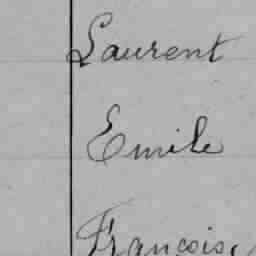 Laurent
Emile
François